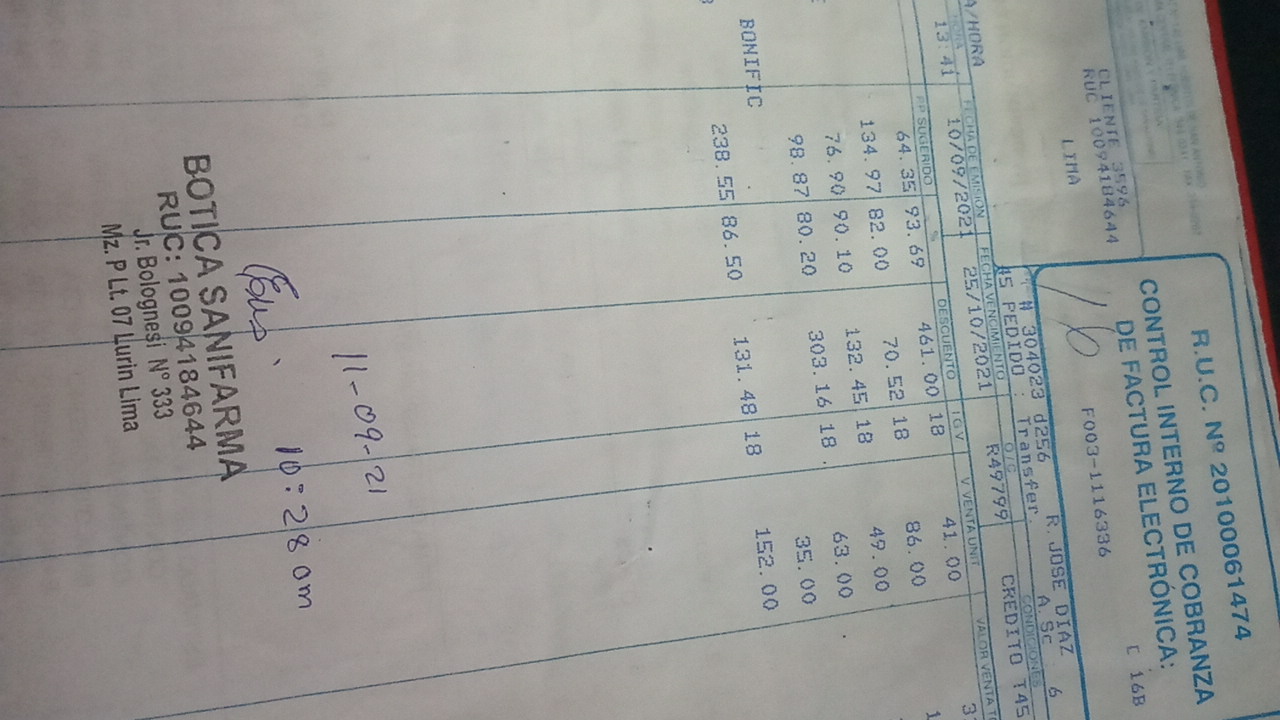 R.U.C. Nº 20100061474
CONTROL INTERNO DE COBRANZA
DE FACTURA ELECTRÓNICA:
C 16B
F003-1116336
CLIENTE 3596
RUC 10094184644
LIMA
16
# 304023 d256 R.JOSE DIAZ 6
PEDIDO : Transfer. A.Sc
A/HORA
HORA FECHA DE EMISION FECHA VENCIMIENTO O/C CONDICIONES
13:41 10/09/2021 25/10/2021 R49799 CREDITO T45
PP SUGERIDO % DESCUENTO IGV V.VENTA UNIT VALOR VENTA
64.35 93.69 461.00 18 41.00
134.97 82.00 70.52 18 86.00
76.90 90.10 132.45 18 49.00
98.87 80.20 303.16 18 63.00
35.00
BONIFIC
238.55 86.50 131.48 18 152.00
11-09-21
10:28 am
BOTICA SANIFARMA
RUC: 10094184644
Jr. Bolognesi Nº 333
Mz. P Lt. 07 Lurin Lima